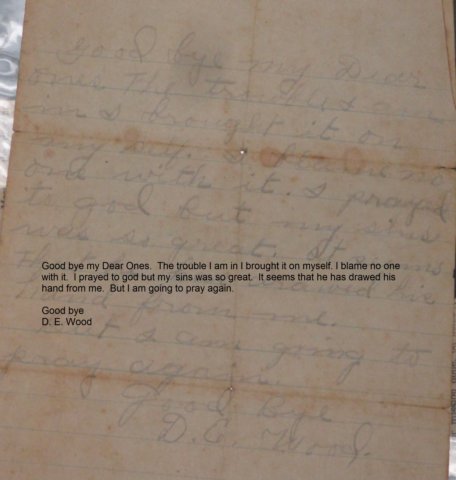 Good bye my Dear
ones The trouble I am
in I brought it on
my self. I blame no
one with it. I prayed
to god but my sins
was so great. It seems
Good bye my Dear Ones.  The trouble I am in I brought it on myself. I blame no one
with it.  I prayed to god but my  sins was so great.  It seems that he has drawed his
hand from me.  But I am going to pray again.
Good bye
D. E. Wood
hand from me.
But I am going to
pray again.
Good bye
D. E. Wood.